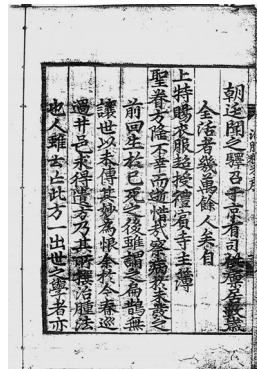 朝廷聞之驛召于京有司居數歲
全活者幾萬餘人矣自
上特賜衣服超授禮賓寺主簿
聖眷方隆不幸而逝惜哉察病於未發之
前回生於已死之後雖謂之扁鵲無
讓世以未傳其妙爲恨余於今春巡
過井邑求得遺方乃其所撰治腫法
也人雖去上此方一出世之學者亦